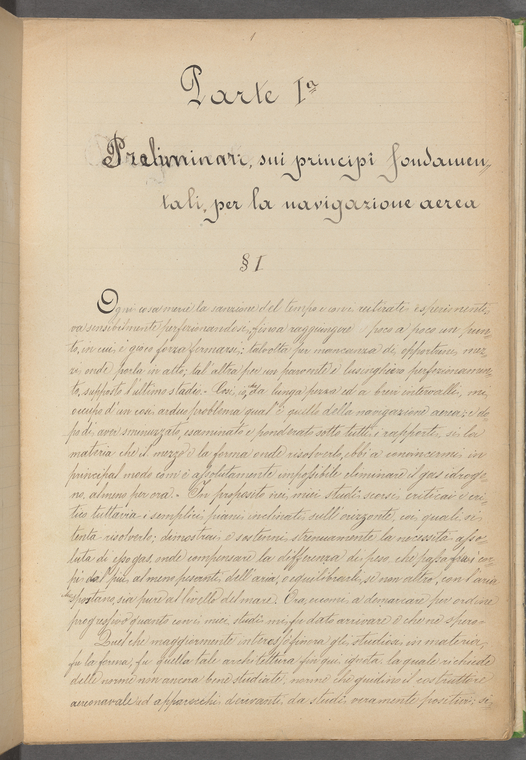 1
Parte Iª
Preliminari, sui principi fondamen-
tali, per la navigazione aerea
§ I
Ogni cosa merci la sanzione del tempo e coi reiterati esperimenti
va sensibilmente perfezionandosi, fino a raggiungere poco a poco un pun-
to, in cui, è giuoco forza fermarsi; talvolta per mancanza di opportuni mez-
zi onde porla in atto; tal altra per un parvente e lusinghiero perfezionamen-
to, supposto l'ultimo stadio. Così, io, da lunga pezza ed a brevi intervalli, mi
occupo d'un così arduo problema qual'è quello della navigazione aerea; e do-
po di aver sminuzzato, esaminato e ponderato sotto tutti i rapporti, sì la
materia che il mezzo e la forma onde risolverlo, ebbi a convincermi in
principal modo com'è assolutamente impossibile eliminare il gas idroge-
no, almeno per ora. In proposito nei miei studi scorsi, criticai e cri-
tico tuttavia i semplici piani inclinati sull'orizzonte, coi quali si
tenta risolverlo; dimostrai e sostenni strenuamente la necessità asso-
luta di esso gas, onde compensare la differenza di peso che passa fra i cor-
pi dal più, al meno pesante, dell'aria; o equilibrarli, se non altro, con l'aria
spostano, sia pure al livello del mare. Ora, eccomi a demarcare per ordine
progressivo quanto con i miei studi mi fu dato arrivare e che ne spero.
Quel che maggiormente interessò finora gli studiosi in materia,
fu la forma, fu quella tale architettura fin qui ignota, la quale richiede
delle norme non ancora bene studiate, norme che guidino il costruttore
aeronavale ad apparecchi derivanti da studi veramente positivi; si-